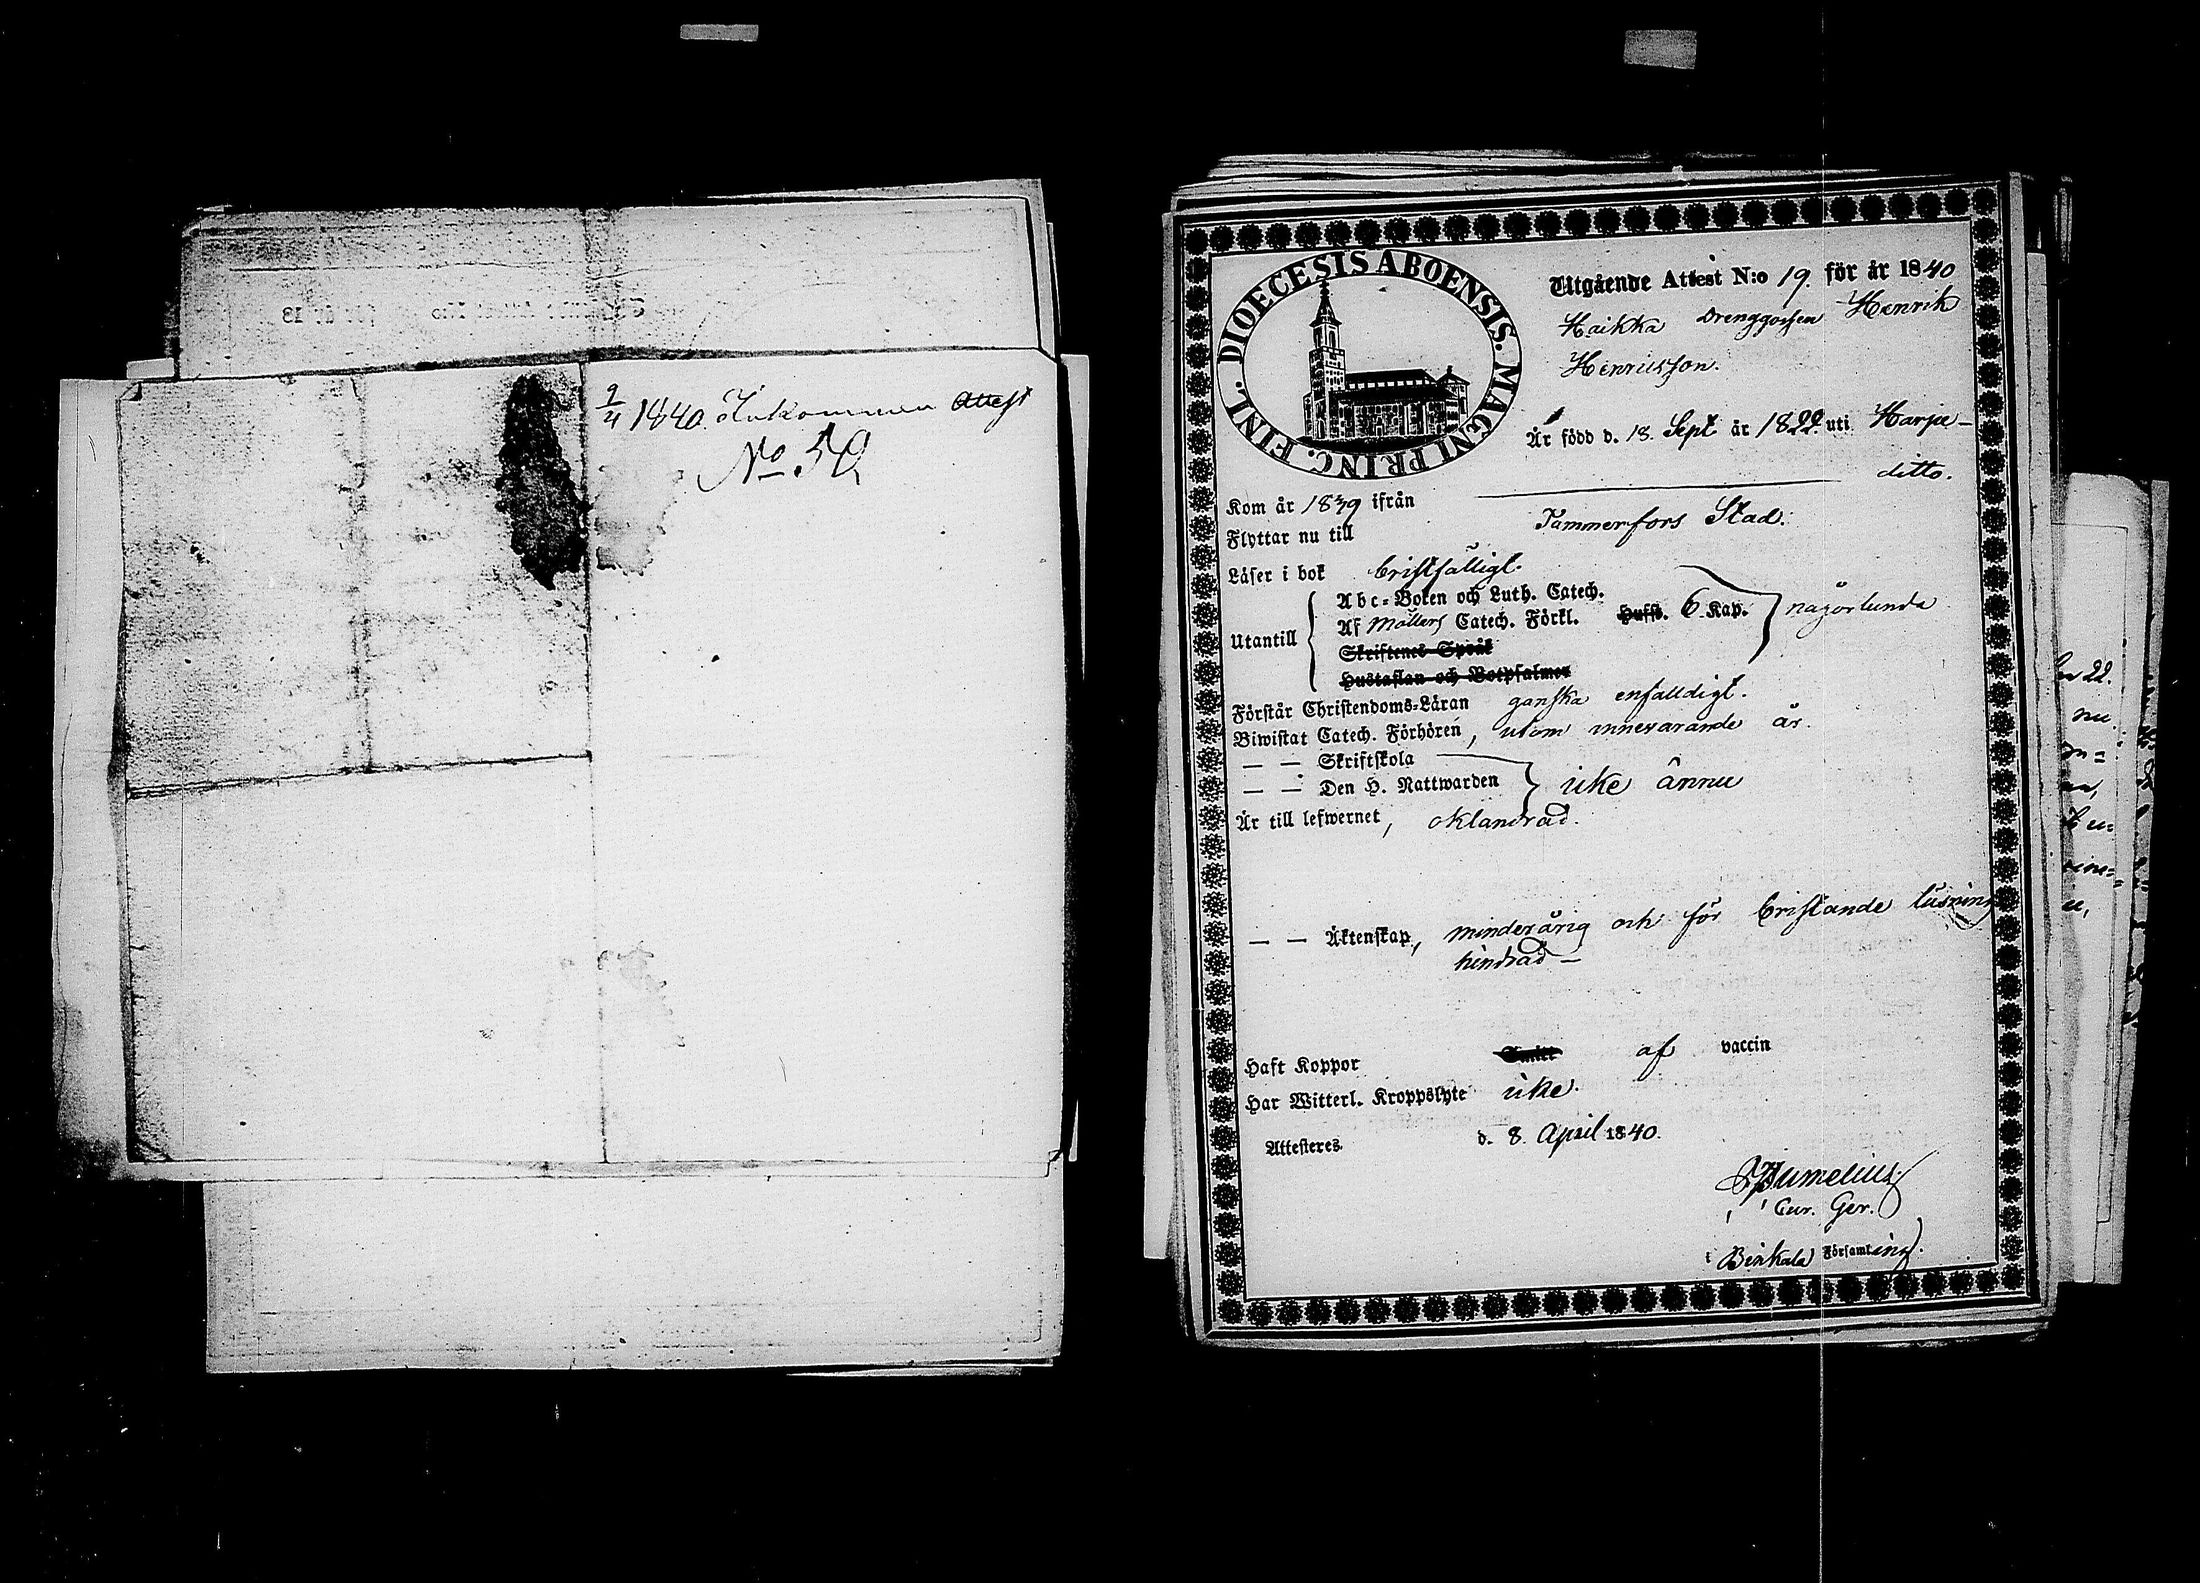 9/4 1840. Inkommen Attest
No 50
FINL. DIOECESIS ABOENSIS. MAGNI PRINC.
Utgående Attest N:o 19. för år 1840
Haikka Drenggossen Henrik
Henricsson.
Är född d. 18. Sept år 1822. uti Harja-
ditto.
Kom år 1839 ifrån
Flyttar nu till Tammerfors Stad.
Läser i bok bristfälligt.
Abc-Boken och Luth. Catech.
Utantill Af Möllers Catech. Förkl. Hufst. 6 Kap. någorlunda
Skriftenes Språk
Hustaflan och Botpsalmer
Förstår Christendoms-Läran ganska enfalldigt.
Biwistat Catech. Förhören, utom innevarande år.
— — Skriftskola
— — Den H. Nattwarden icke ännu
Är till lefwernet, oklandrad.
— — Äktenskap, minderårig och för bristande läsning
hindrad —
Haft Koppor af vaccin
Har Witterl. Kroppslyte icke.
Attesteres d. 8. April 1840.
Cur. Ger.
i Birkala Församling.